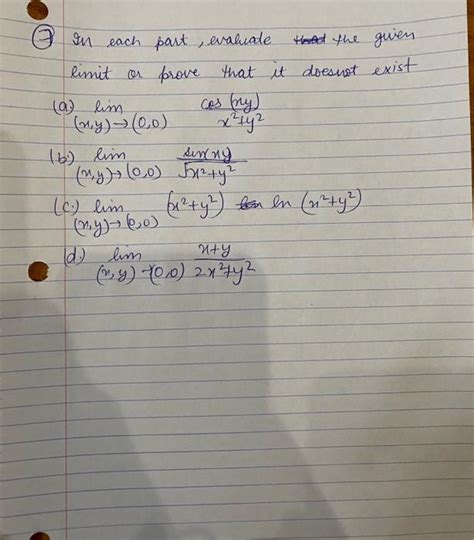 7 In each part, evaluate the given
limit or prove that it doesnot exist
(a) lim (x,y)→(0,0) cos (xy) / x²+y²
(b.) lim (x,y)→(0,0) sin xy / √x²+y²
(c.) lim (x,y)→(0,0) (x²+y²) ln (x²+y²)
(d.) lim (x,y)→(0,0) x+y / 2x²+y²